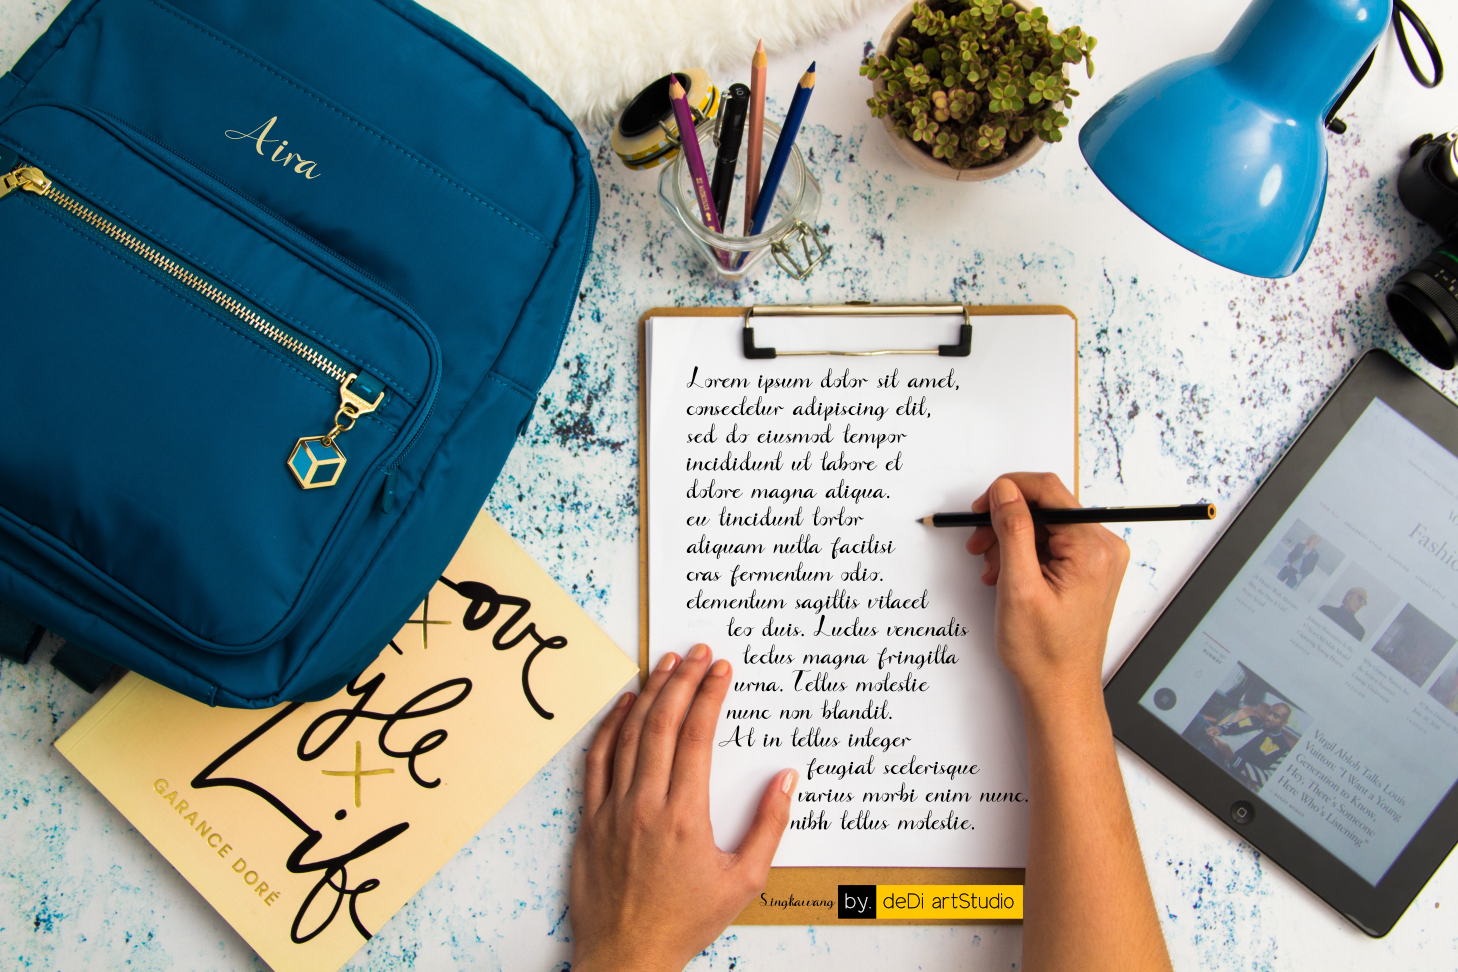 Aira
Love
x
Style
x
Life
GARANCE DORÉ
Lorem ipsum dolor sit amet,
consectetur adipiscing elit,
sed do eiusmod tempor
incididunt ut labore et
dolore magna aliqua.
eu tincidunt tortor
aliquam nulla facilisi
cras fermentum odio.
elementum sagittis vitaeet
leo duis. Luctus venenatis
lectus magna fringilla
urna. Tellus molestie
nunc non blandit.
At in tellus integer
feugiat scelerisque
varius morbi enim nunc.
nibh tellus molestie.
Singkawang by. deDi artStudio
Fashio
Virgil Abloh Talks Louis
Vuitton: "I Want a Young
Generation to Know,
Hey, There's Someone
Here Who's Listening"